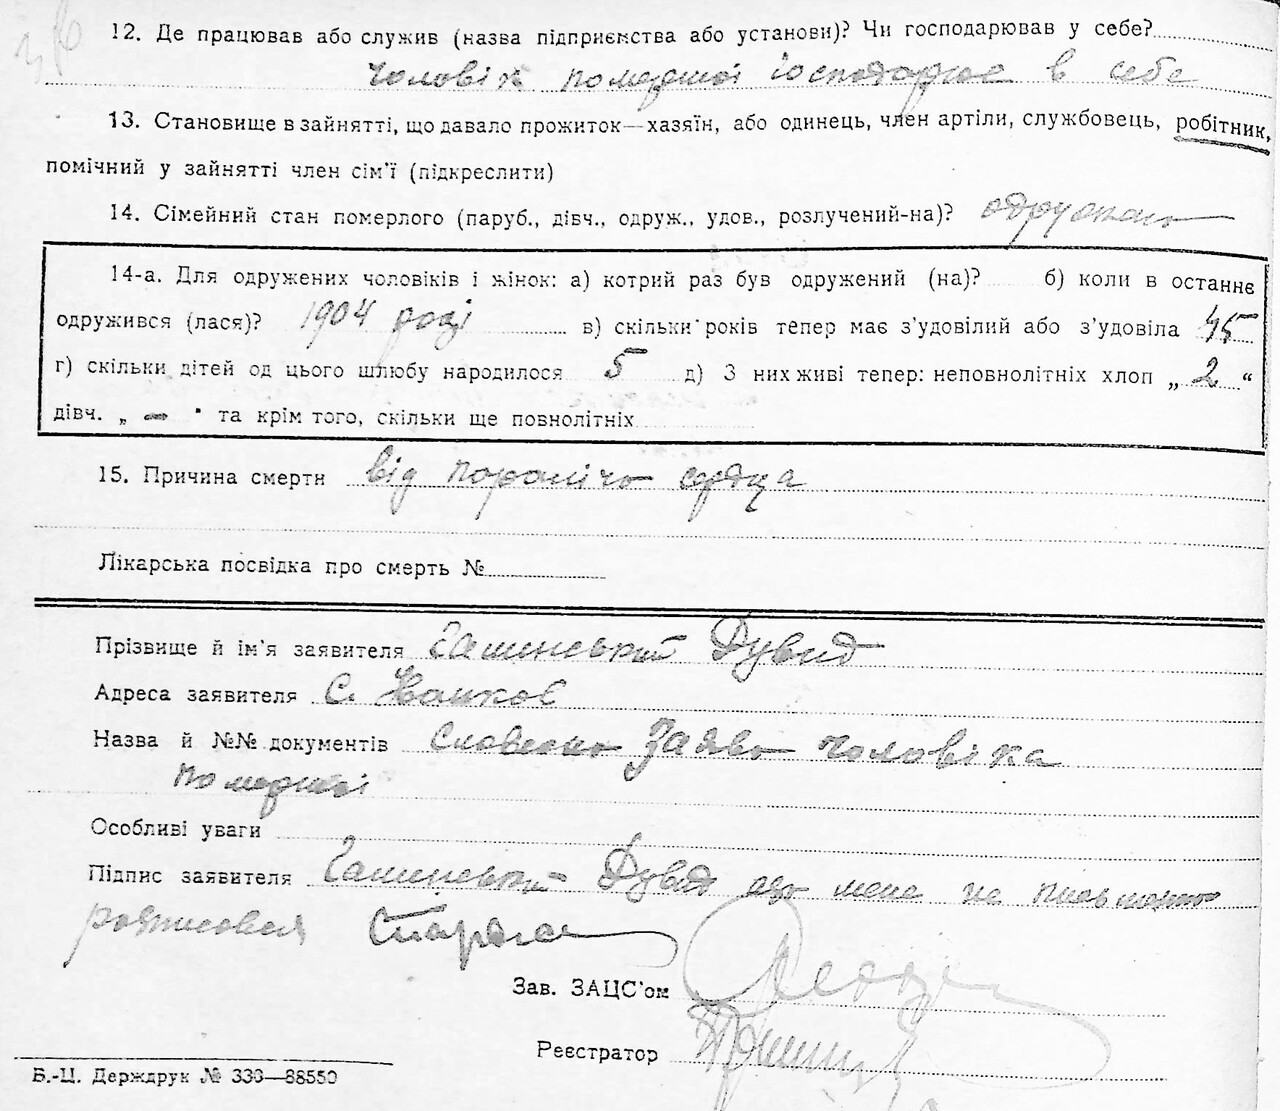 12. Де працював або служив (назва підприємства або установи)? Чи господарював у себе?
Чоловік помершої господарює в себе
13. Становище в зайнятті, що давало прожиток—хазяїн, або одинець, член артіли, службовець, робітник,
помічний у зайнятті член сім'ї (підкреслити)
14. Сімейний стан померлого (паруб., дівч., одруж., удов., розлучений-на)?
14-а. Для одружених чоловіків і жінок: а) котрий раз був одружений (на)? б) коли в останнє
одружився (лася)? 1904 році в) скільки років тепер має з'удовілий або з'удовіла 45
г) скільки дітей од цього шлюбу народилося 5 д) З них живі тепер: неповнолітніх хлоп „ 2 “
дівч. „ — " та крім того, скільки ще повнолітніх
15. Причина смерти від параліча сердца
Лікарська посвідка про смерть №
Прізвище й ім'я заявителя Дувид
Адреса заявителя С.
Назва й №№ документів Словесно Заява чоловіка
помершої
Особливі уваги
Підпис заявителя Дувид
Зав. ЗАЦС'ом
Реєстратор
Б.-Ц. Держдрук № 330—88550